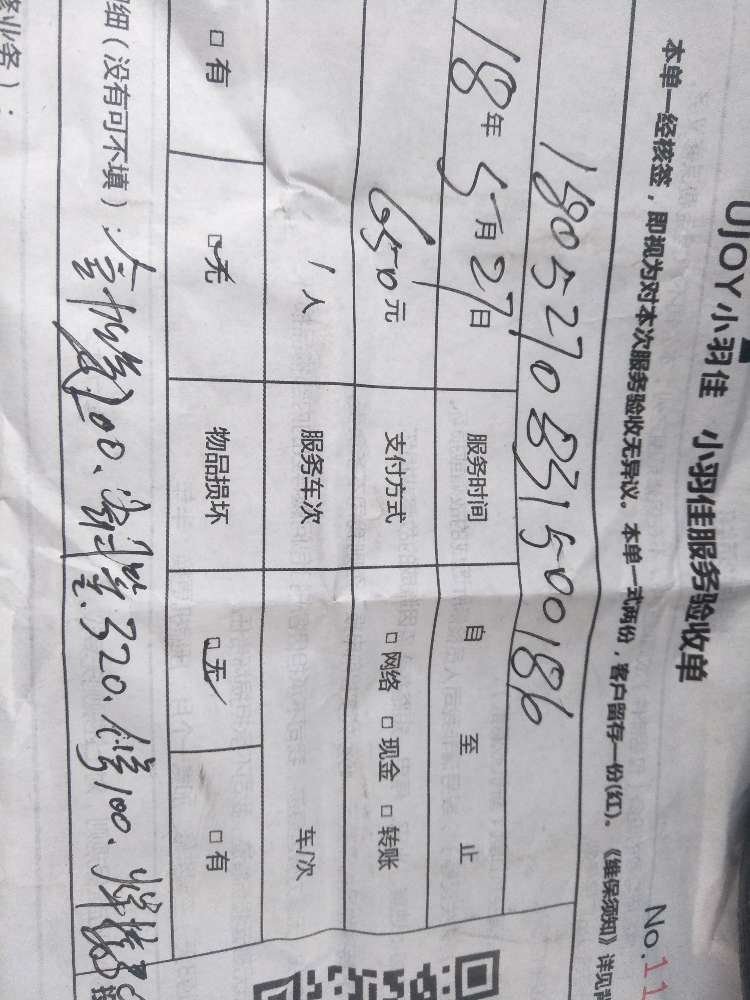 UJOY小羽佳 小羽佳服务验收单
No.11
本单一经核签，即视为对本次服务验收无异议。本单一式两份，客户留存一份(红)。《维保须知》详见背
180527083150018 6
18年5月27日 服务时间 自 至 止
650元 支付方式 □网络 □现金 □转账
1人 服务车次 车/次
□有 □无 物品损坏 □无 □有
细（没有可不填）：200、320、100、焊接
修业务）：